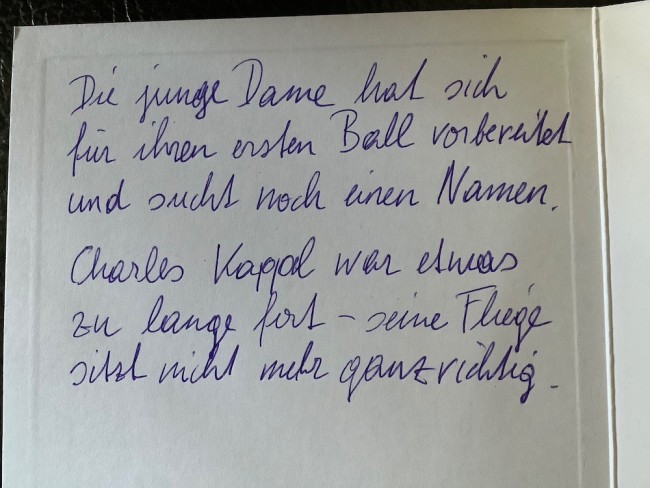 Die junge Dame hat sich
für ihren ersten Ball vorbereitet
und sucht noch einen Namen.
Charles Kappl war etwas
zu lange fort – seine Fliege
sitzt nicht mehr ganz richtig.